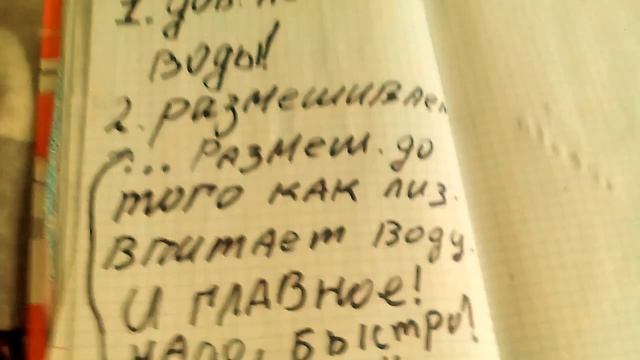 1. доб. по
воды!
2. размешивает
... размеш. до
того как лиз.
впитает воду.
и главное!
надо, быстро!